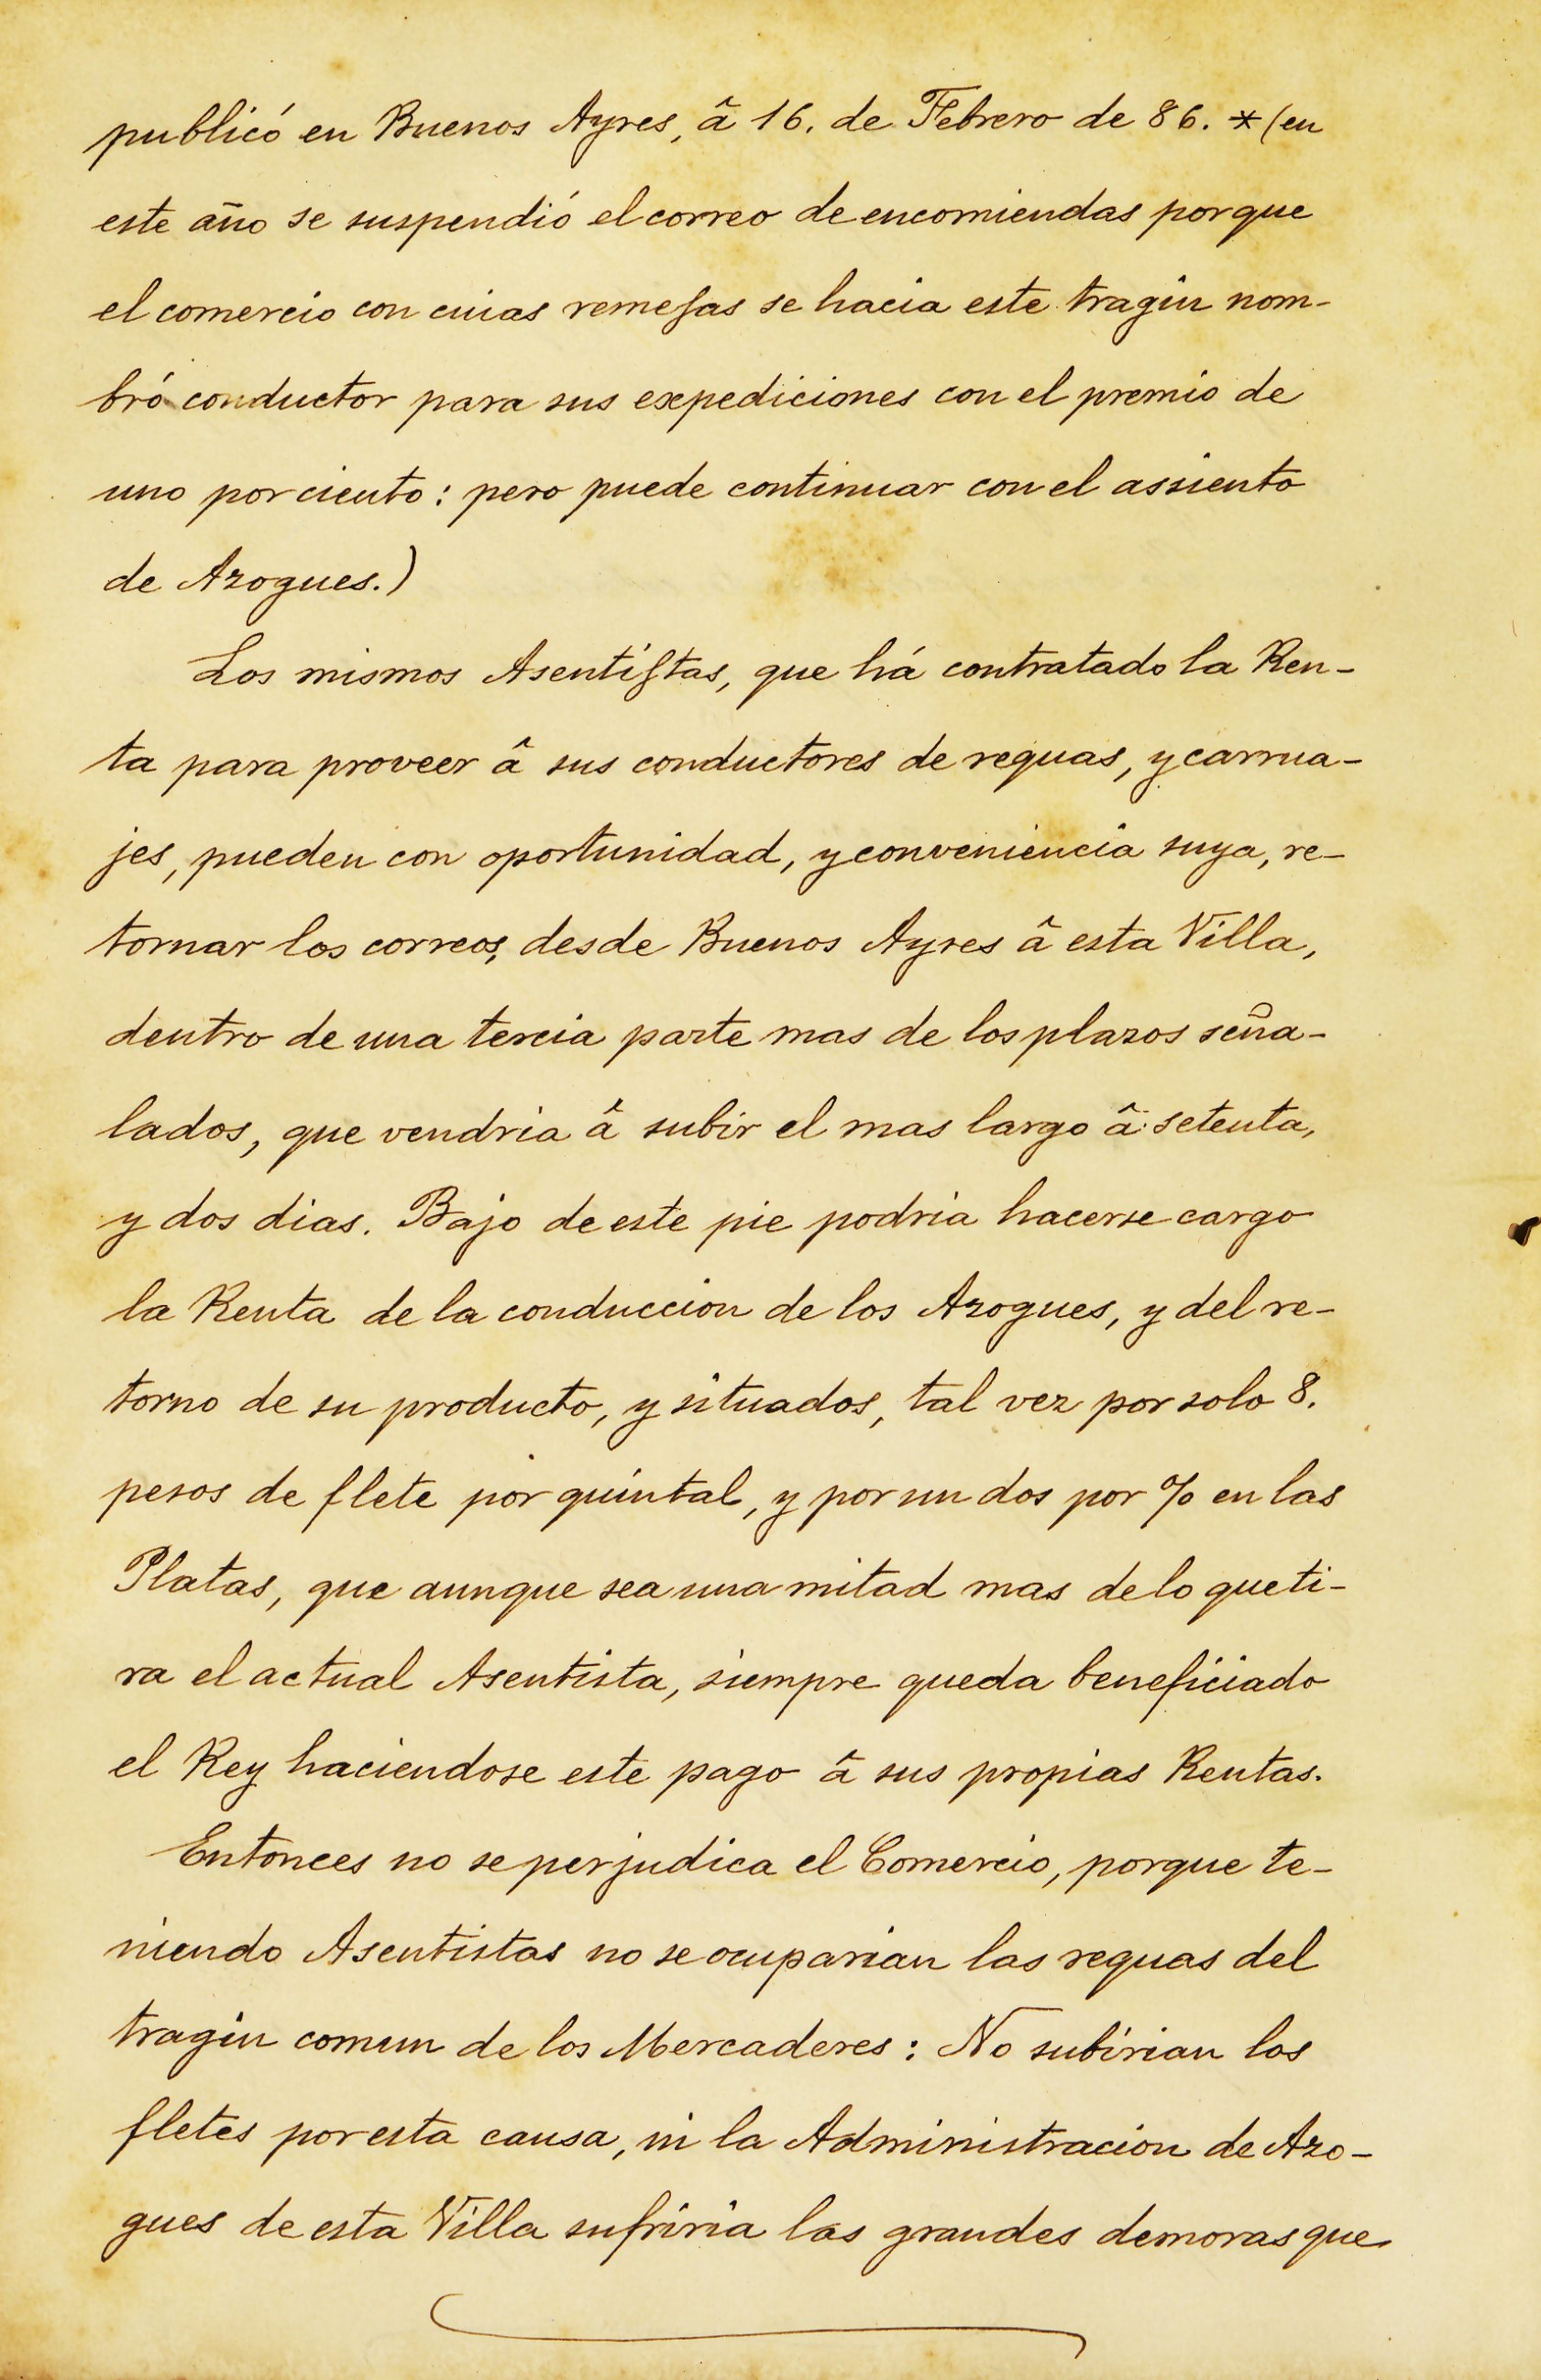 publicó en Buenos Ayres, â 16. de Febrero de 86. * (en
este año se suspendió el correo de encomiendas porque
el comercio con cuias remesas se hacia este tragin nom-
bró conductor para sus expediciones con el premio de
uno por ciento: pero puede continuar con el assiento
de Azogues.)
Los mismos Asentistas, que há contratado la Ren-
ta para proveer â sus conductores de requas, y carrua-
jes, pueden con oportunidad, y conveniencia suya, re-
tornar los correos, desde Buenos Ayres â esta Villa,
dentro de una tercia parte mas de los plazos seña-
lados, que vendria â subir el mas largo â setenta,
y dos dias. Bajo de este pie podria hacerse cargo
la Renta de la conduccion de los Azogues, y del re-
torno de su producto, y situados, tal vez por solo 8.
pesos de flete por quintal, y por un dos por % en las
Platas, que aunque sea una mitad mas de lo que ti-
ra el actual Asentista, siempre queda beneficiado
el Rey haciendose este pago â sus propias Rentas.
Entonces no se perjudica el Comercio, porque te-
niendo Asentistas no se ocuparian las requas del
tragin comun de los Mercaderes: No subirian los
fletes por esta causa, ni la Administracion de Azo-
gues de esta Villa sufriria las grandes demoras que